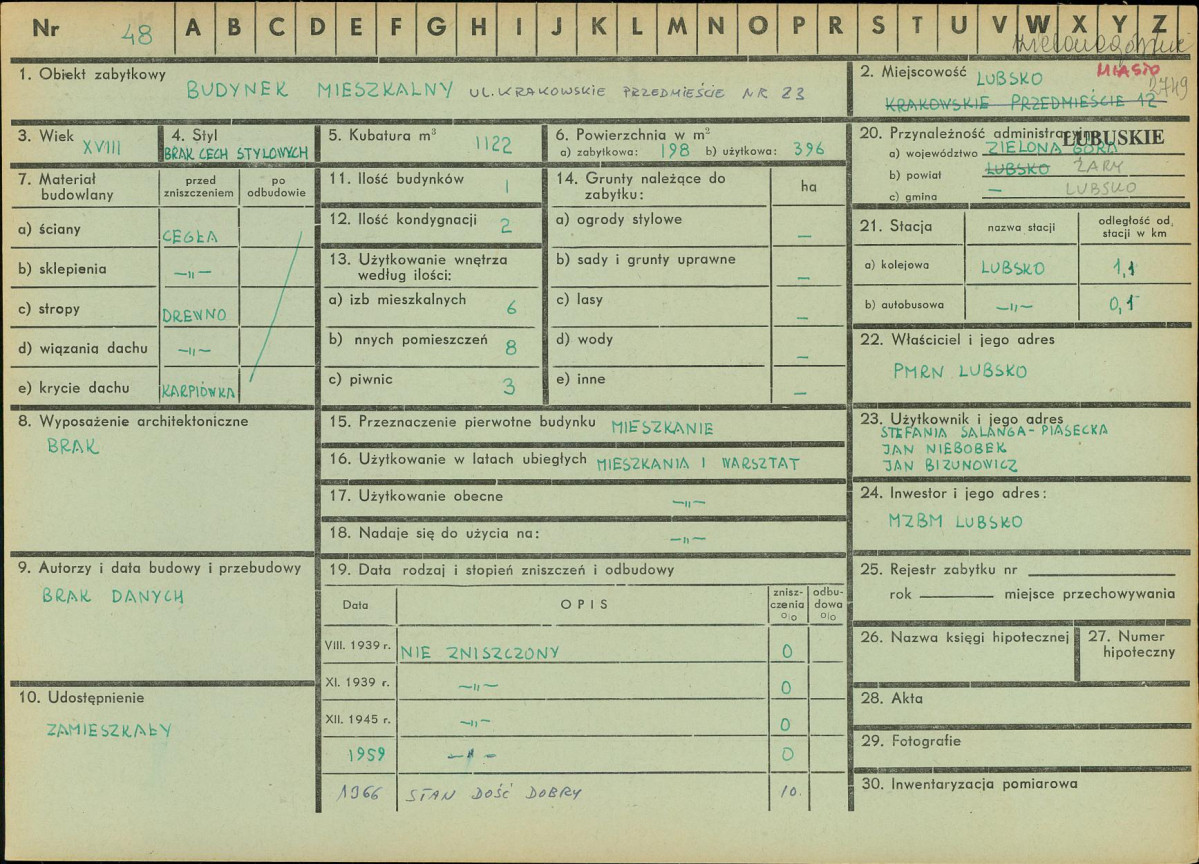 Nr 48 A B C D E F G H I J K L M N O P R S T U V W X Y Z
1. Obiekt zabytkowy
BUDYNEK MIESZKALNY UL. KRAKOWSKIE PRZEDMIEŚCIE NR 23
2. Miejscowość LUBSKO MIASTO 2749
KRAKOWSKIE PRZEDMIEŚCIE 12
3. Wiek XVIII
4. Styl
BRAK CECH STYLOWYCH
5. Kubatura m³ 1122
6. Powierzchnia w m²
a) zabytkowa: 198 b) użytkowa: 396
7. Materiał budowlany
przed zniszczeniem
po odbudowie
a) ściany CEGŁA
b) sklepienia —„—
c) stropy DREWNO
d) wiązania dachu —„—
e) krycie dachu KARPIÓWKA
8. Wyposażenie architektoniczne
BRAK
9. Autorzy i data budowy i przebudowy
BRAK DANYCH
10. Udostępnienie
ZAMIESZKAŁY
11. Ilość budynków 1
12. Ilość kondygnacji 2
13. Użytkowanie wnętrza
według ilości:
a) izb mieszkalnych 6
b) nnych pomieszczeń 8
c) piwnic 3
14. Grunty należące do
zabytku:
ha
a) ogrody stylowe —
b) sady i grunty uprawne —
c) lasy —
d) wody —
e) inne —
15. Przeznaczenie pierwotne budynku MIESZKANIE
16. Użytkowanie w latach ubiegłych MIESZKANIA I WARSZTAT
17. Użytkowanie obecne —„—
18. Nadaje się do użycia na: —„—
19. Data rodzaj i stopień zniszczeń i odbudowy
Data OPIS znisz-
czenia
%
odbu-
dowa
%
VIII. 1939 r. NIE ZNISZCZONY 0
XI. 1939 r. —„— 0
XII. 1945 r. —„— 0
1959 —„— 0
1966 STAN DOŚĆ DOBRY 10.
20. Przynależność administracyjna
LUBUSKIE
a) województwo ZIELONA GÓRA
b) powiat LUBSKO ŻARY
c) gmina — LUBSKO
21. Stacja
nazwa stacji
odległość od
stacji w km
a) kolejowa LUBSKO 1,1
b) autobusowa —„— 0,1
22. Właściciel i jego adres
PMRN LUBSKO
23. Użytkownik i jego adres
STEFANIA SALANGA-PIASECKA
JAN NIEBOBEK
JAN BIZUNOWICZ
24. Inwestor i jego adres:
MZBM LUBSKO
25. Rejestr zabytku nr
rok miejsce przechowywania
26. Nazwa księgi hipotecznej
27. Numer
hipoteczny
28. Akta
29. Fotografie
30. Inwentaryzacja pomiarowa